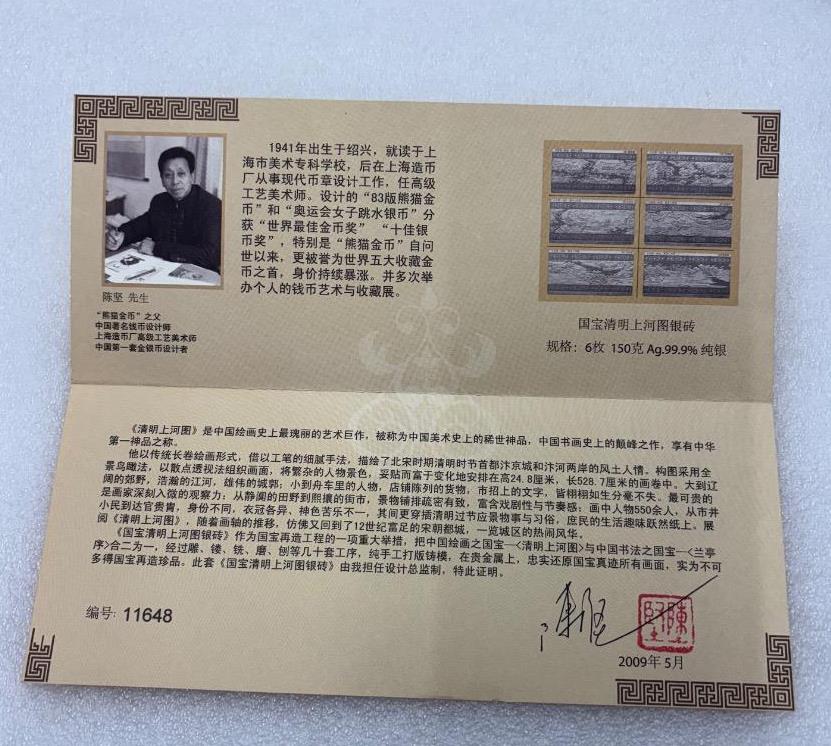 1941年出生于绍兴，就读于上
海市美术专科学校，后在上海造币
厂从事现代币章设计工作，任高级
工艺美术师。设计的“83版熊猫金
币”和“奥运会女子跳水银币”分
获“世界最佳金币奖”“十佳银
币奖”，特别是“熊猫金币”自问
世以来，更被誉为世界五大收藏金
币之首，身价持续暴涨。并多次举
办个人的钱币艺术与收藏展。
陈坚 先生
“熊猫金币”之父
中国著名钱币设计师
上海造币厂高级工艺美术师
中国第一套金银币设计者
国宝清明上河图银砖
规格：6枚 150克 Ag.99.9% 纯银
《清明上河图》是中国绘画史上最瑰丽的艺术巨作，被称为中国美术史上的稀世神品，中国书画史上的巅峰之作，享有中华
第一神品之称。
他以传统长卷绘画形式，借以工笔的细腻手法，描绘了北宋时期清明时节首都汴京城和汴河两岸的风土人情。构图采用全
景鸟瞰法，以散点透视法组织画面，将繁杂的人物景色，妥贴而富于变化地安排在高24.8厘米，长528.7厘米的画卷中。大到辽
阔的郊野，浩瀚的江河，雄伟的城郭，小到舟车里的人物，店铺陈列的货物，市招上的文字，皆栩栩如生分毫不失。最可贵的
是画家深刻入微的观察力：从静阒的田野到熙攘的街市，景物铺排疏密有致，富含戏剧性与节奏感；画中人物550余人，从市井
小民到达官贵胄，身份不同，衣冠各异、神色苦乐不一，其间更穿插清明过节应景物事与习俗，庶民的生活趣味跃然纸上。展
阅《清明上河图》，随着画轴的推移，仿佛又回到了12世纪富足的宋朝都城，一览城区的热闹风华。
《国宝清明上河图银砖》作为国宝再造工程的一项重大举措，把中国绘画之国宝—<清明上河图>与中国书法之国宝—<兰亭
序>合二为一，经过雕、镂、铣、磨、刨等几十套工序，纯手工打版铸模，在贵金属上，忠实还原国宝真迹所有画面，实为不可
多得国宝再造珍品。此套《国宝清明上河图银砖》由我担任设计总监制，特此证明。
编号: 11648
陈坚
陳堅
2009年5月